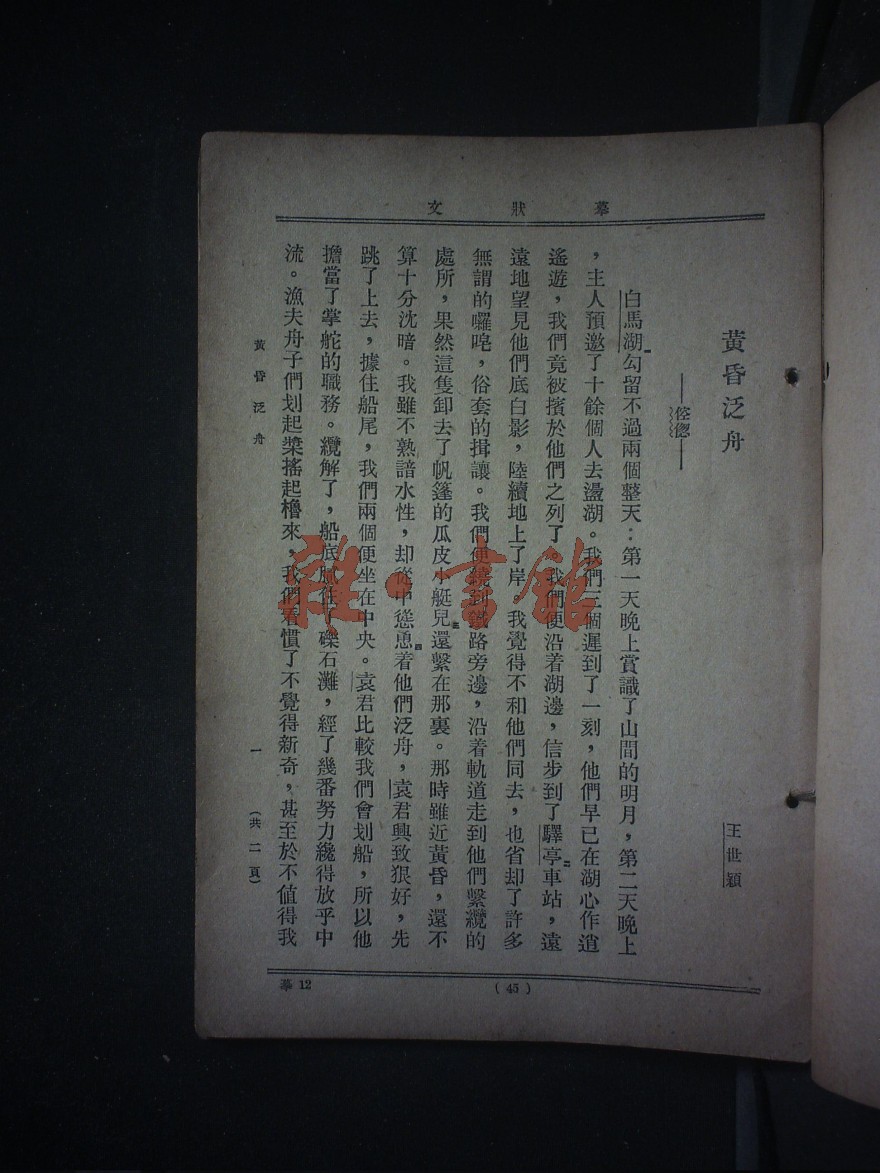 摹狀文
黃昏泛舟
——倥傯——
王世穎
白馬湖勾留不過兩個整天：第一天晚上賞識了山間的明月，第二天晚上
，主人預邀了十餘個人去盪湖。我們三個遲到了一刻，他們早已在湖心作逍
遙遊，我們竟被擯於他們之列了。我們便沿着湖邊，信步到了驛亭車站，遠
遠地望見他們底白影，陸續地上了岸。我覺得不和他們同去，也省却了許多
無謂的囉唣，俗套的揖讓。我們便繞到鐵路旁邊，沿着軌道走到他們繫纜的
處所，果然這隻卸去了帆篷的瓜皮小艇兒還繫在那裏。那時雖近黃昏，還不
算十分沈暗。我雖不熟諳水性，却從中慫恿着他們泛舟，袁君興致狠好，先
跳了上去，據住船尾，我們兩個便坐在中央。袁君比較我們會划船，所以他
擔當了掌舵的職務。纜解了，船底膠住了礫石灘，經了幾番努力纔得放乎中
流。漁夫舟子們划起槳搖起櫓來，我們看慣了不覺得新奇，甚至於不值得我
黃昏泛舟
一
（共二頁）
摹 12
( 45 )
雜·書館